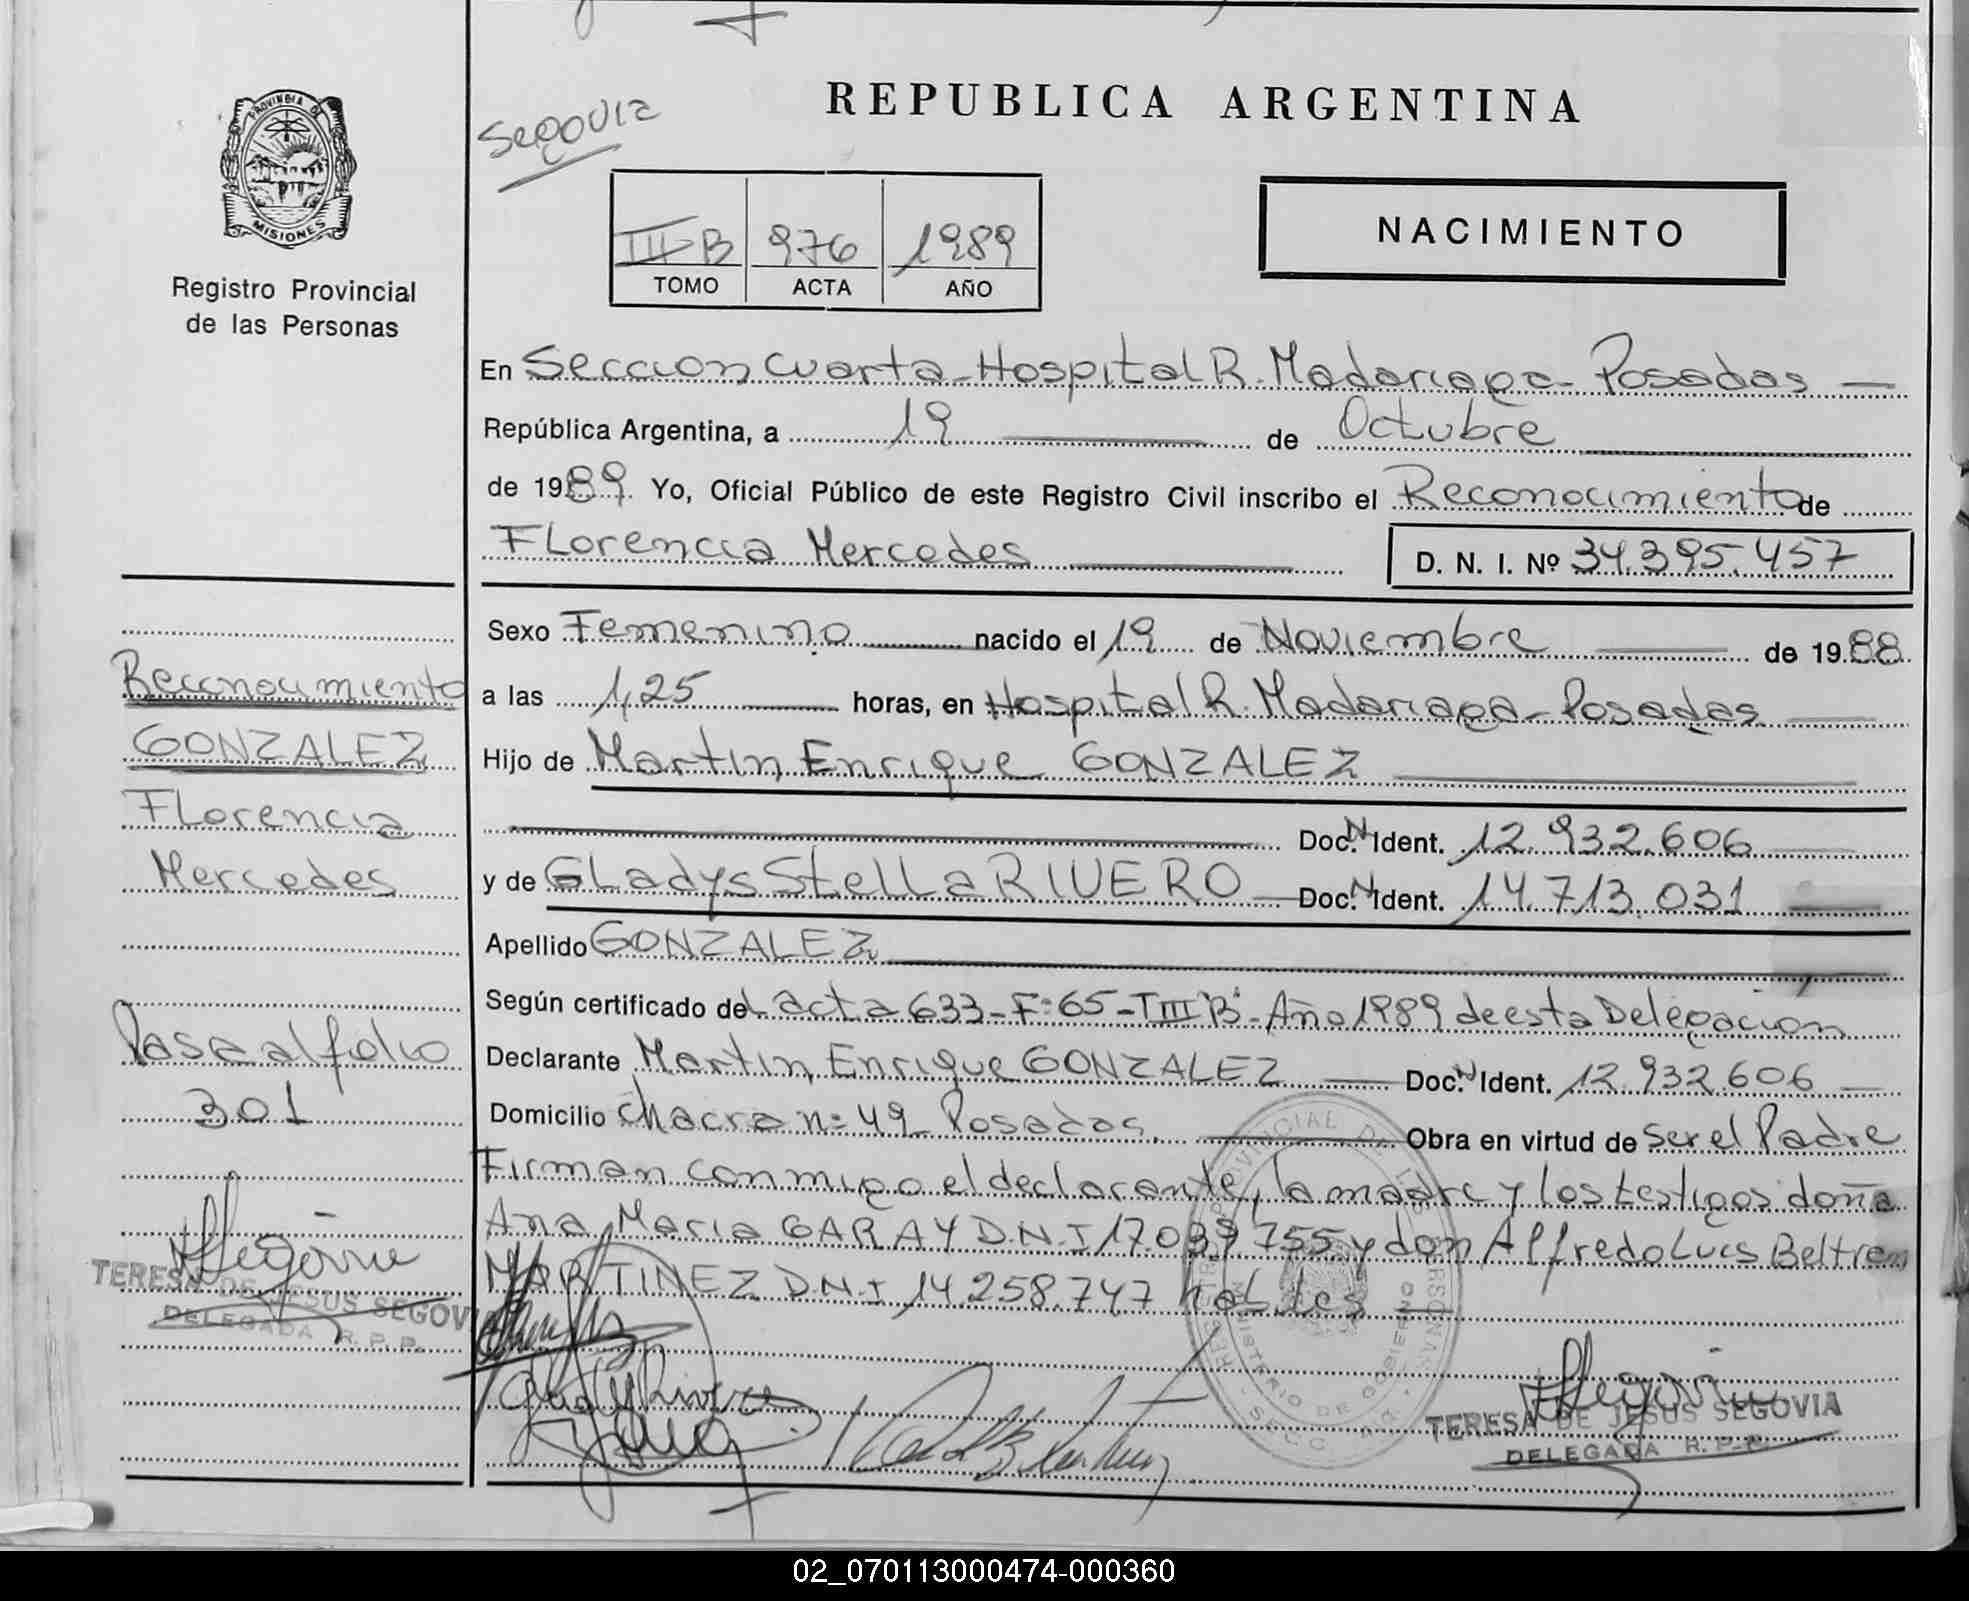 PROVINCIA DE
MISIONES
Registro Provincial
de las Personas
Segovia
REPUBLICA ARGENTINA
III B 976 1989
TOMO ACTA AÑO
NACIMIENTO
En Seccion Cuarta - Hospital R. Madariaga - Posadas
República Argentina, a 19 de Octubre
de 1989. Yo, Oficial Público de este Registro Civil inscribo el Reconocimiento de
Florencia Mercedes D. N. I. Nº 34.395.457
Sexo Femenino nacido el 19 de Noviembre de 1988
a las 1,25 horas, en Hospital R. Madariaga - Posadas
Hijo de Martin Enrique GONZALEZ
Doc. N. Ident. 12.932.606
y de Gladys Stella RIVERO Doc. N. Ident. 14.713.031
Apellido GONZALEZ
Según certificado del acta 633 - F: 65 - T III "B" - Año 1989 de esta Delegacion
Declarante Martin Enrique GONZALEZ Doc. N. Ident. 12.932.606
Domicilio chacra n: 49 Posadas. Obra en virtud de ser el Padre
Firman conmigo el declarante, la madre y los testigos doña
Ana Maria GARAY D.N.I 17.039.755 y don Alfredo Luis Beltren
MARTINEZ D.N.I 14.258.747 habiles
Reconocimiento
GONZALEZ
Florencia
Mercedes
Pase al folio
301
Segovia
TERESA DE JESUS SEGOVIA
DELEGADA R. P. P.
Gladys Rivero
Segovia
TERESA DE JESUS SEGOVIA
DELEGADA R. P. P.
02_070113000474-000360